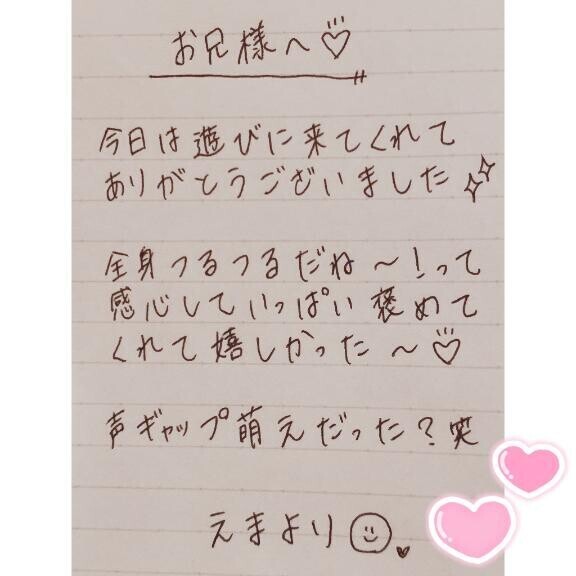 お兄様へ♡
今日は遊びに来てくれて
ありがとうございました
全身つるつるだね〜!って
感心していっぱい褒めて
くれて嬉しかった〜♡
声ギャップ萌えだった?笑
えまより